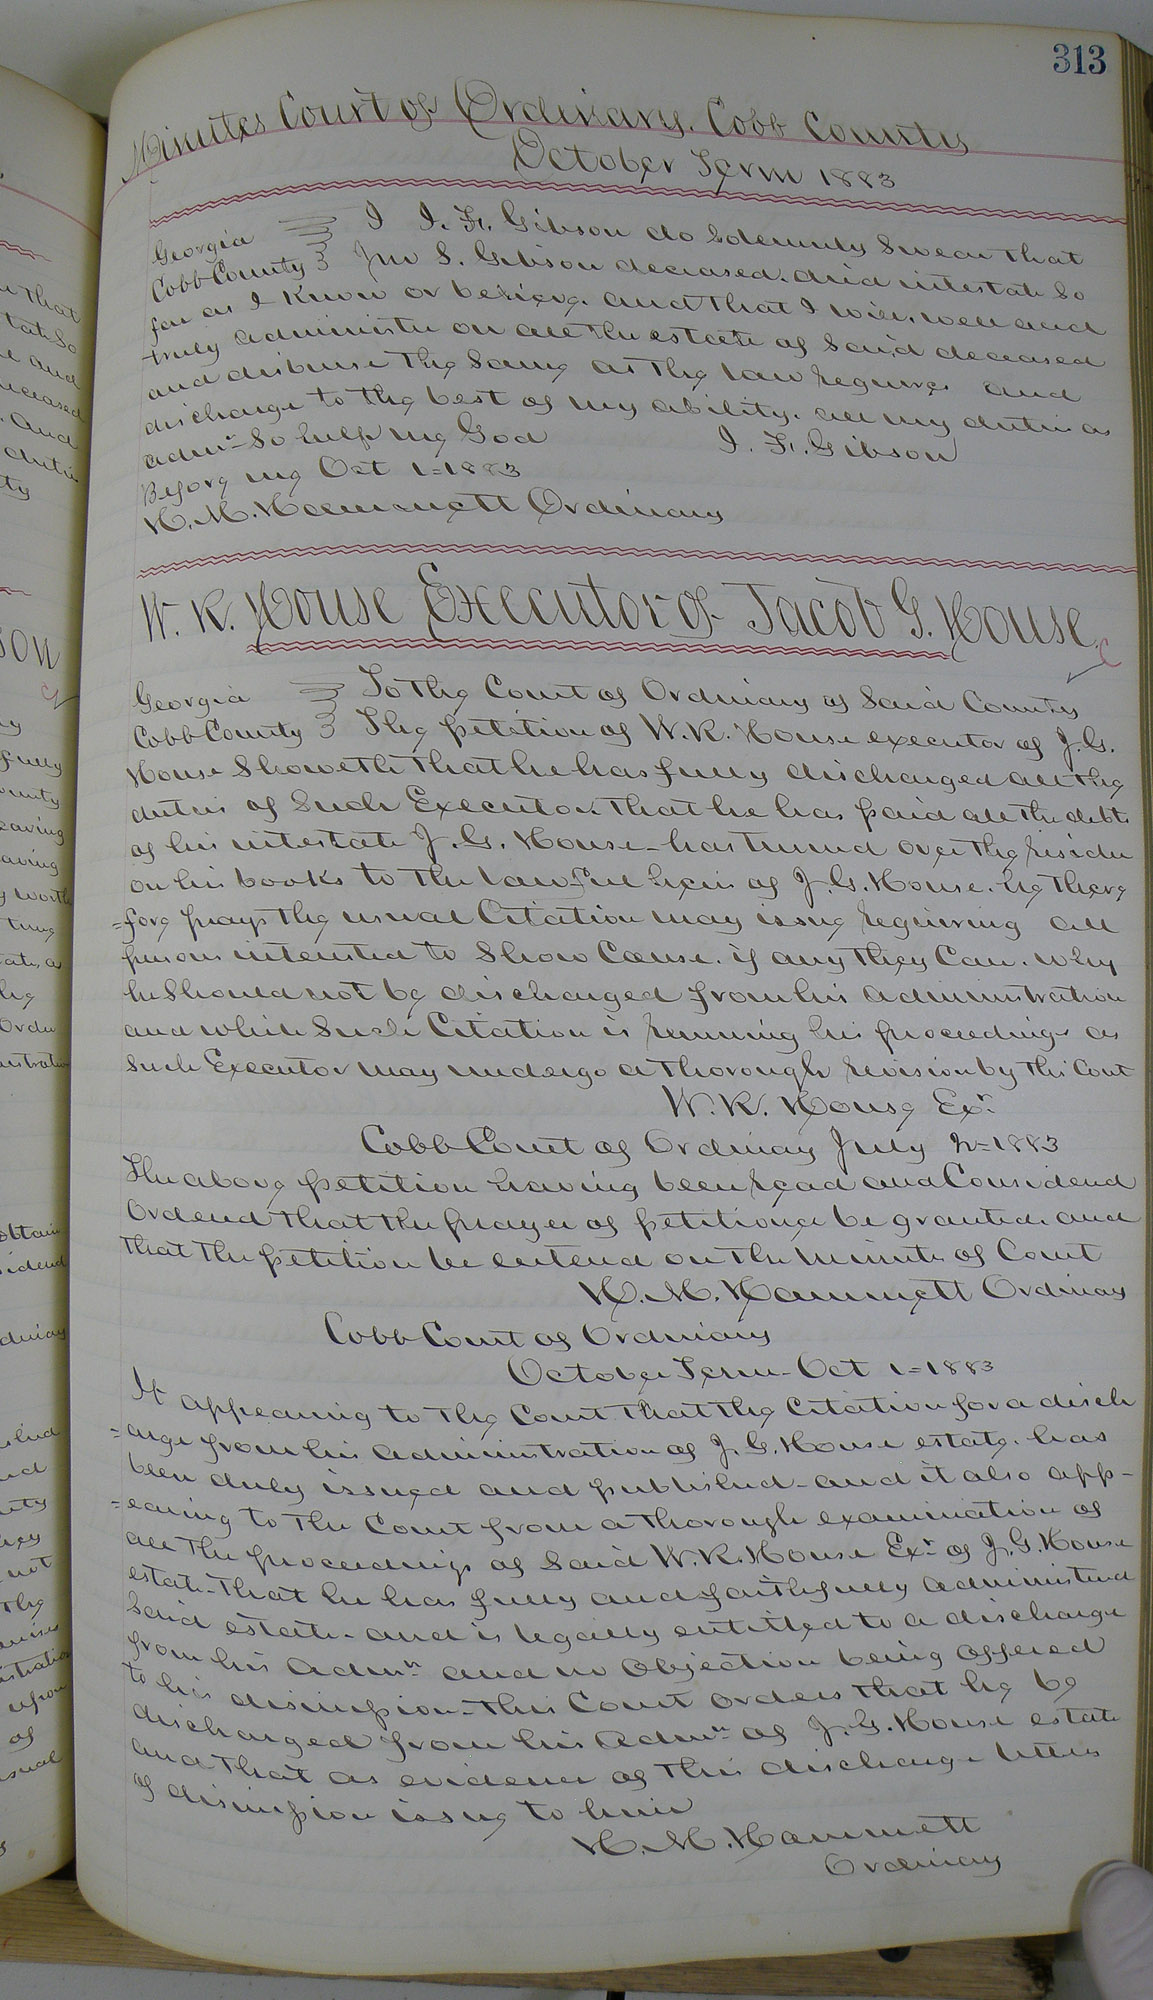 313
Minutes Court of Ordinary. Cobb County
October Term 1883
Georgia I I. F. Gibson do Solemnly Swear that
Cobb County Jno S. Gibson deceased. died intestate So
far as I Know or believe. and that I will. well and
truly administer on all the estate of Said deceased
and disburse the Same as the law requires and
discharge to the best of my ability. all my duties as
admr So help me God I. F. Gibson
Before me Oct 1=1883
H. M. Hammett Ordinary
W. K. House Executor of Jacob G. House
Georgia To the Court of Ordinary of Said County
Cobb County The petition of W. K. House executor of J. G.
House Showeth that he has fully discharged all the
duties of Such Executor. that he has paid all the debts
of his intestate J. G. House - has turned over the residue
on his books to the lawful heirs of J. G. House. he there
=fore prays the usual Citation may issue requiring all
persons interested to Show Cause. if any they Can. why
he Should not be discharged from his administration
and while Such Citation is running his proceedings as
Such Executor may undergo a thorough revision by this Court
W. K. House Exr
Cobb Court of Ordinary July 2=1883
The above petition having been read and Considered
Ordered that the prayer of petitioner be granted. and
that the petition be entered on the minutes of Court
H. M. Hammett Ordinary
Cobb Court of Ordinary
October Term- Oct 1=1883
It appearing to the Court that the Citation for a disch
=arge from his administration of J. G. House estate. has
been duly issued and published - and it also app-
=earing to the Court from a thorough examination of
all the proceedings of Said W. K. House Exr of J. G. House
estate- that he has fully and faithfully administered
Said estate - and is legally entitled to a discharge
from his Admn and no Objection being offered
to his dismission - this Court orders that he be
discharged from his Admn of J. G. House estate
and that as evidence of this discharge letters
of dismission issue to him
H. M. Hammett
Ordinary